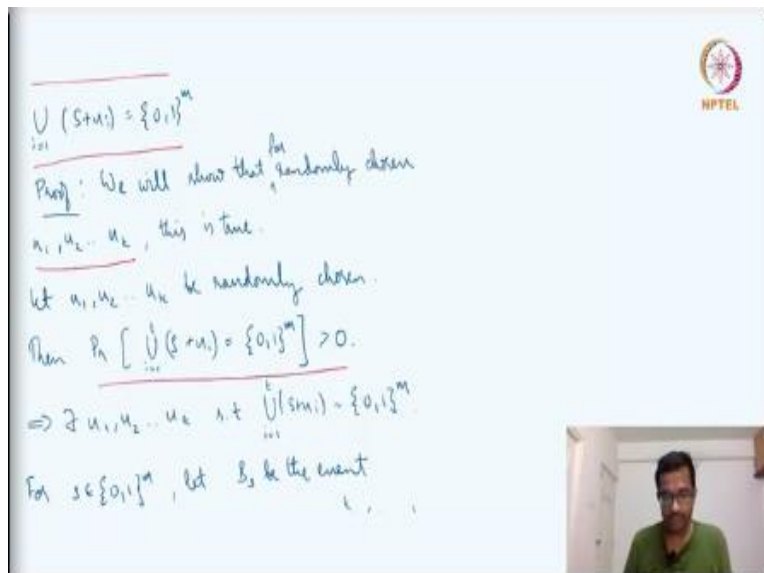 ⋃ᵢ₌₁ (S+uᵢ) = {0,1}^m
Proof: We will show that for randomly chosen
u₁, u₂ .. u_k, this is true.
Let u₁, u₂ .. u_k be randomly chosen.
Then Pr [ ⋃ᵢ₌₁ (S+uᵢ) = {0,1}^m ] > 0.
⇒ ∃ u₁, u₂ .. u_k s.t ⋃ᵢ₌₁ (S+uᵢ) = {0,1}^m
For s ∈ {0,1}^m, let B_s be the event
NPTEL